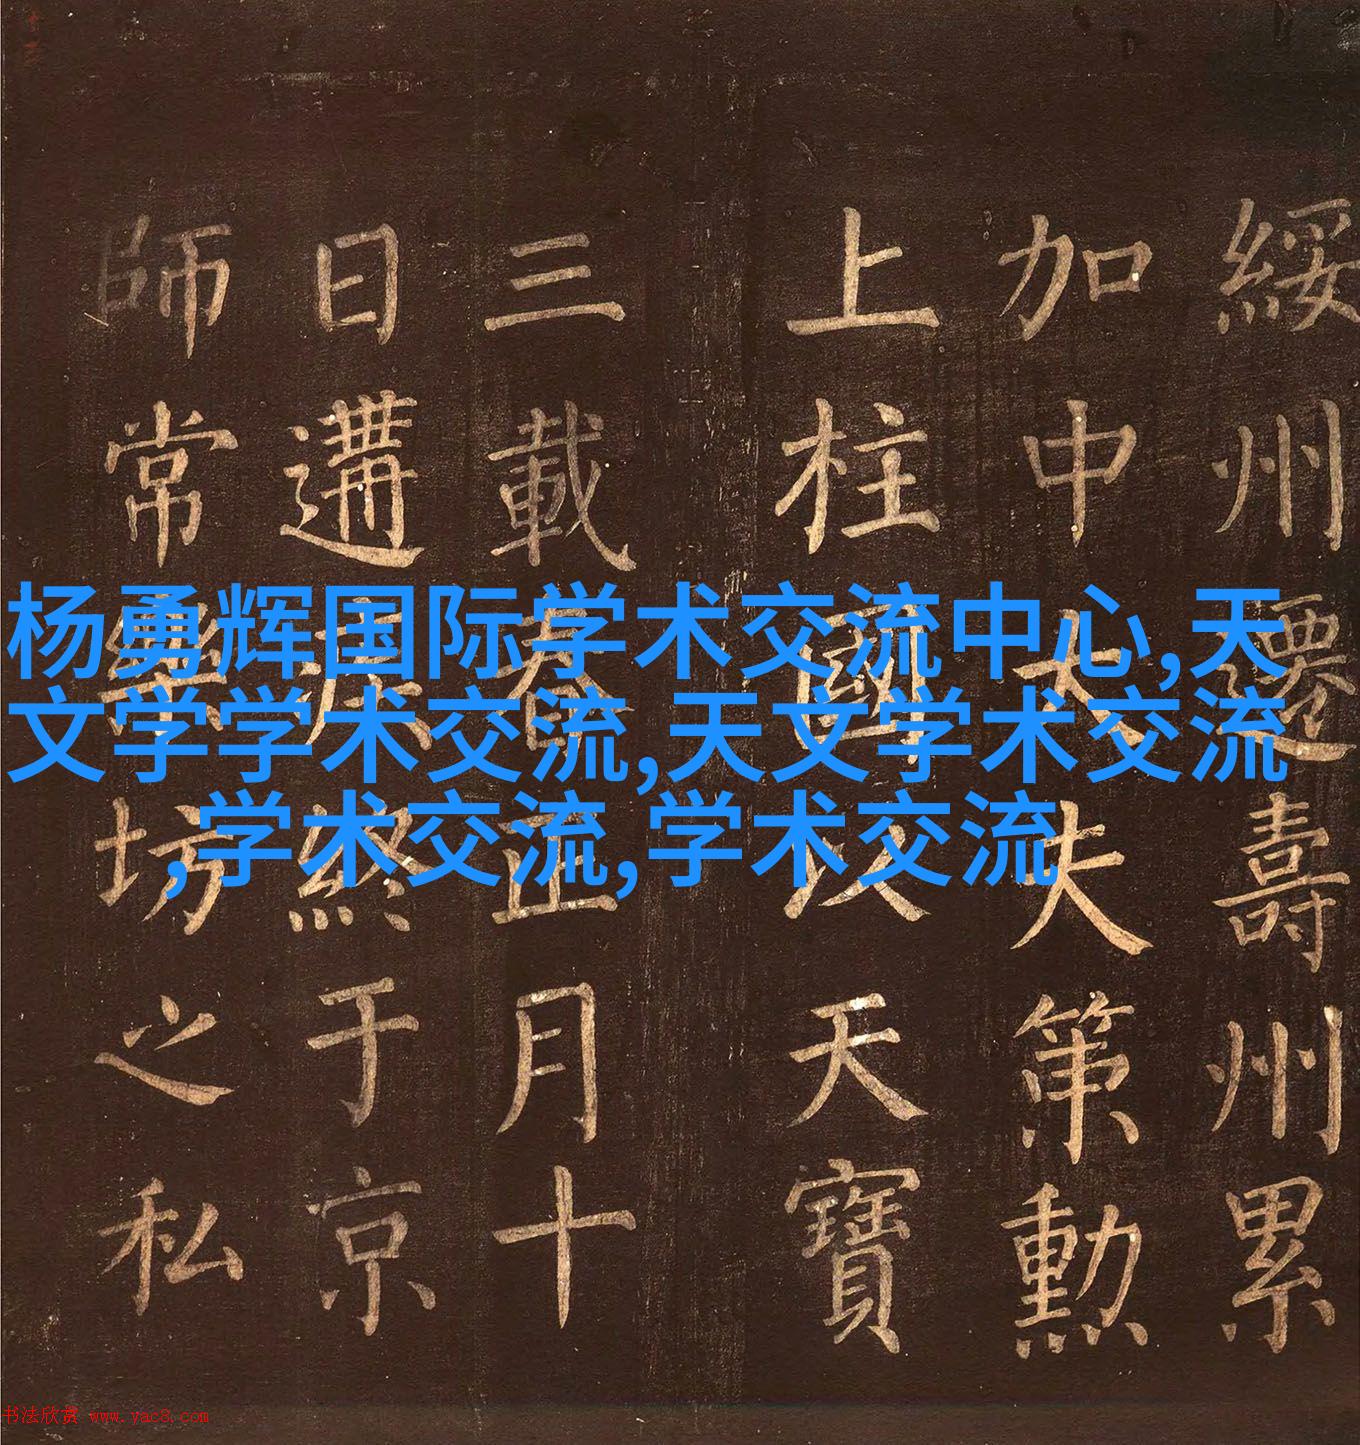 杨勇辉国际学术交流中心,天
文学学术交流,天文学术交流
,学术交流,学术交流
綏州遷壽州累
加中大夫第勳
上柱國以天寶
三載春正月十
日遘疾終于京
師常樂坊之私
书法欣赏 www.yac8.com